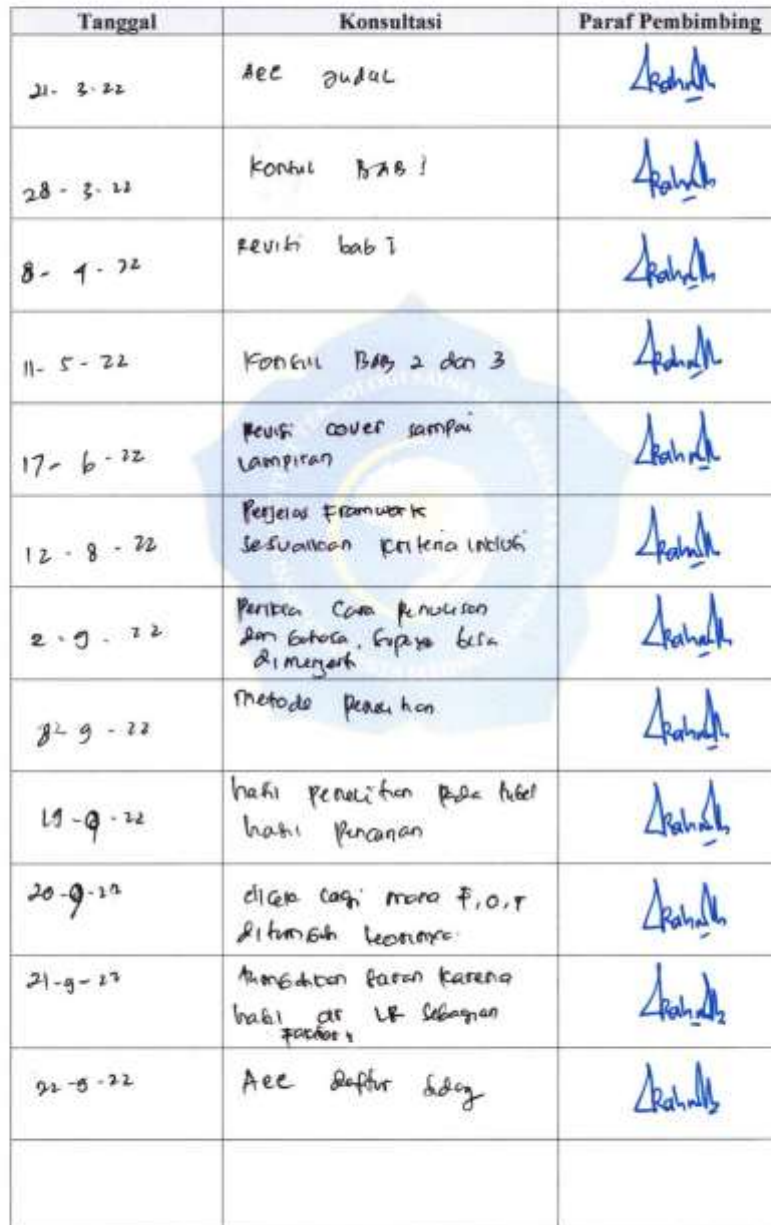 Tanggal Konsultasi Paraf Pembimbing
21- 3-22 Acc Judul
28 - 3- 22 Konsul BAB 1
8- 4 - 22 Revisi bab I
11- 5 - 22 Konsul BAB 2 dan 3
17- 6 -22 Revisi cover sampai
Lampiran
12 - 8 - 22 Perjelas Framwork
Sesuaikan kriteria inklusi
2 - 9 - 22 Cara Penulisan
dan bahasa, supaya bisa
dimengerti
9 - 22 metode Penelitian
19-9-22 hasil penelitian pada tabel
hasil Pencarian
20-9-22 lagi mana P, O, T
teorinya
21-9-22 saran karena
hasil LR Sebagian
22-9-22 Acc daftar sidang